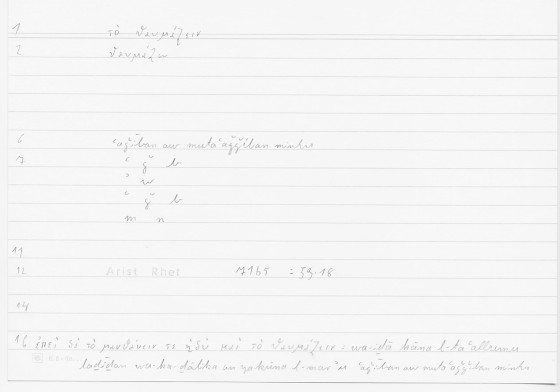 1 τὸ θαυμάζειν
2 θαυμάζω
6 ʿaǧīban aw mutaʿaǧǧiban minhu
7 ʿ ǧ b
ʾ w
ʿ ǧ b
m n
11
12 Arist Rhet 71b5 = 59.18
14
16 ἐπεὶ δὲ τὸ μανθάνειν τε ἡδὺ καὶ τὸ θαυμάζειν : wa-iḏā kāna l-taʿallumu
laḏīḏan wa-ka-ḏālika an yakūna l-marʾu ʿaǧīban aw mutaʿaǧǧiban minhu